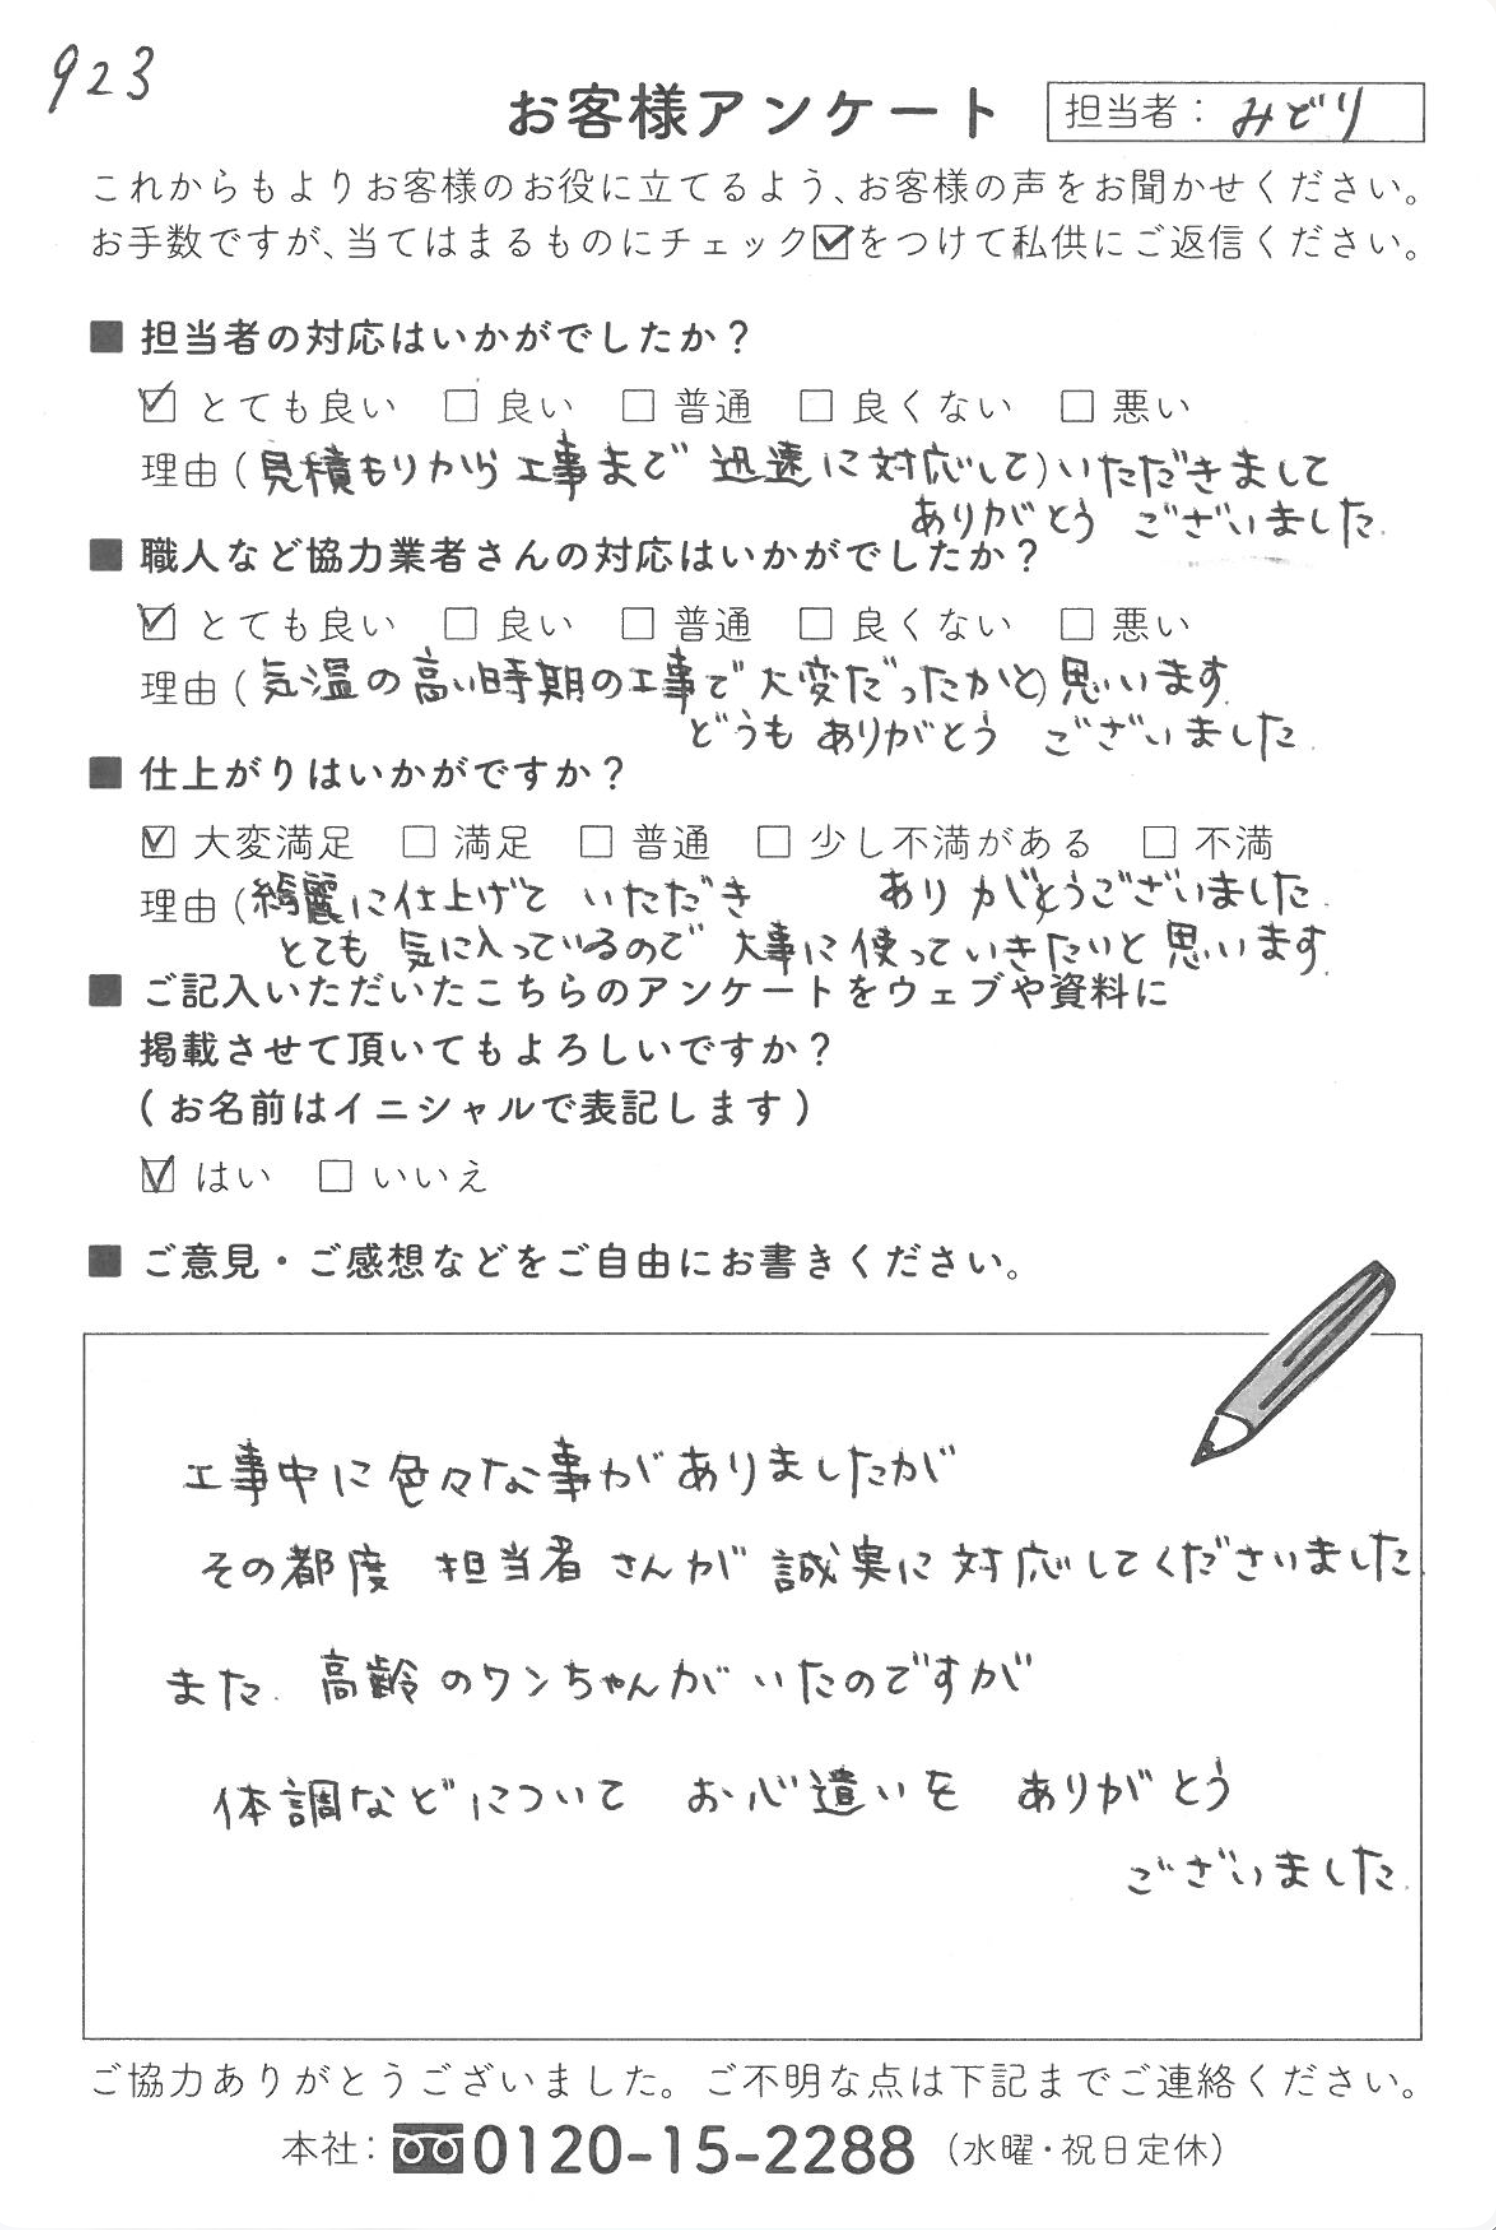 923
お客様アンケート 担当者：みどり
これからもよりお客様のお役に立てるよう、お客様の声をお聞かせください。
お手数ですが、当てはまるものにチェック☑をつけて私供にご返信ください。
■ 担当者の対応はいかがでしたか？
☑ とても良い □ 良い □ 普通 □ 良くない □ 悪い
理由（見積もりから工事まで 迅速に対応して）いただきまして
ありがとう ございました.
■ 職人など協力業者さんの対応はいかがでしたか？
☑ とても良い □ 良い □ 普通 □ 良くない □ 悪い
理由（気温の高い時期の工事で大変だったかと）思います.
どうも ありがとう ございました.
■ 仕上がりはいかがですか？
☑ 大変満足 □ 満足 □ 普通 □ 少し不満がある □ 不満
理由（綺麗に仕上げて いただき ありがとうございました.
とても 気に入っているので 大事に使っていきたいと思います.
■ ご記入いただいたこちらのアンケートをウェブや資料に
掲載させて頂いてもよろしいですか？
（お名前はイニシャルで表記します）
☑ はい □ いいえ
■ ご意見・ご感想などをご自由にお書きください。
工事中に色々な事がありましたが
その都度 担当者さんが 誠実に対応してくださいました.
また. 高齢のワンちゃんがいたのですが
体調などについて お心遣いを ありがとう
ございました.
ご協力ありがとうございました。ご不明な点は下記までご連絡ください。
本社：0120-15-2288（水曜・祝日定休）